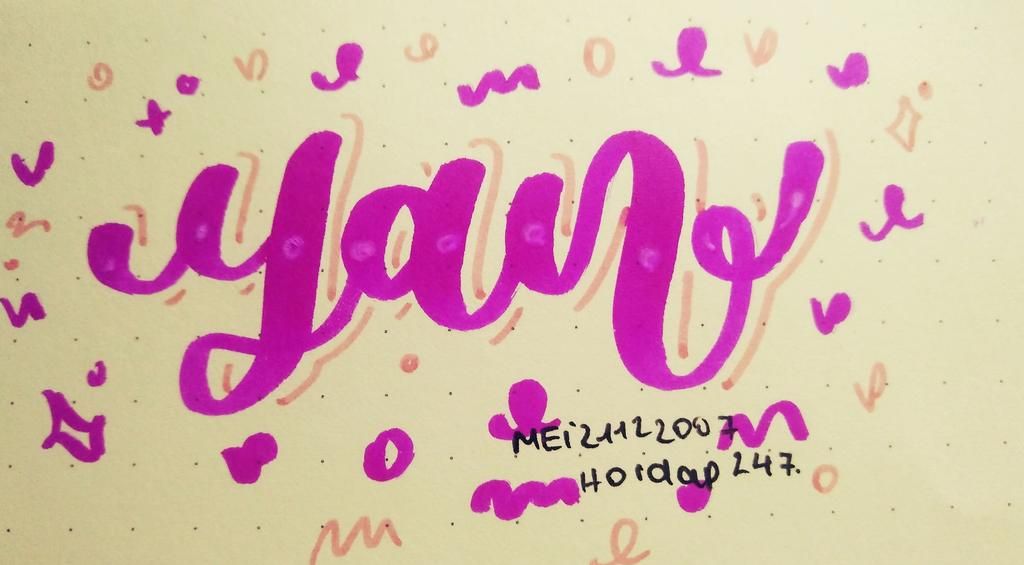 yan
MEi21122007
Hoidap247.